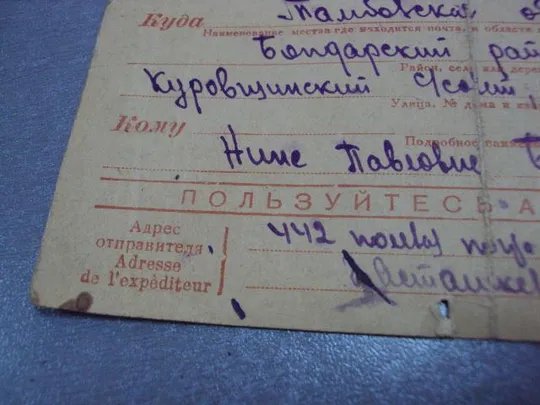 Куда Тамбовская о
Наименование места где находится почта, и области
Бондарский рай
Район, село или дере
Куровщинский с/совет
Улица, № дома и кв
Кому
Подробное наимен
Нине Павловне
ПОЛЬЗУЙТЕСЬ А
Адрес
отправителя
Adresse
de l'expéditeur
442 полев почт